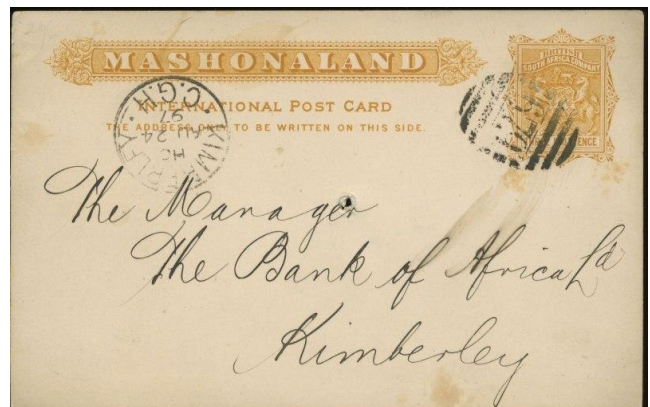 MASHONALAND
INTERNATIONAL POST CARD
THE ADDRESS ONLY TO BE WRITTEN ON THIS SIDE.
BRITISH
SOUTH AFRICA COMPANY
KIMBERLEY
AU 24
97
C.G.H
The Manager
The Bank of Africa Ld
Kimberley